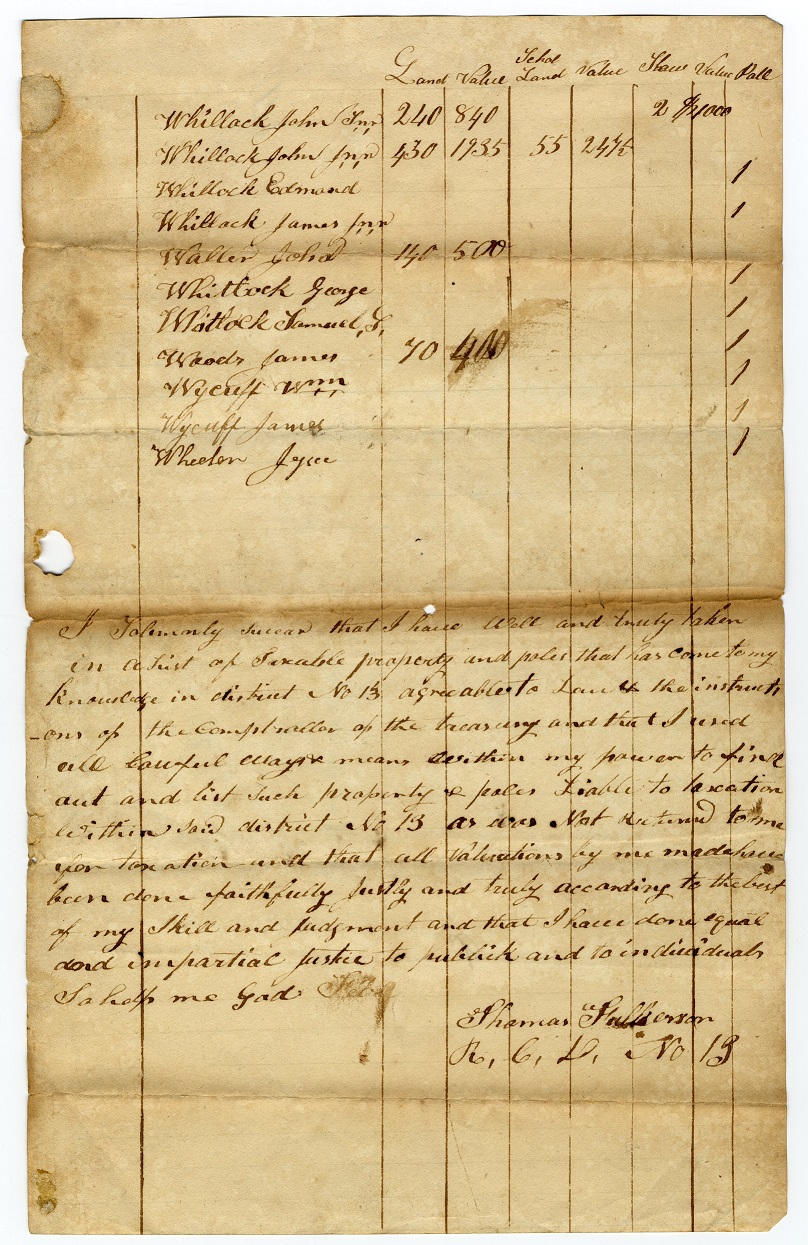 Land Value Schol Land Value Slave Value Poll
Whitlock John Snr 240 840 2 $1000
Whitlock John Jnr 430 1935 55 247½
Whitlock Edmond 1
Whitlock James Jnr 1
Waller John 140 500
Whitlock George 1
Whitlock Samuel, S, 1
Woods James 70 400 1
Wycuff Wm 1
Wycuff James 1
Wheeler 1
I Solemnly swear that I have Well and truly taken
in a List of Taxable property and poles that has come to my
knowledge in district No 13 agreable to Law & the instructi
-ons of the Comptroller of the treasury and that I used
all Lawful ways & means within my power to find
out and list such property & poles Liable to taxation
Within said district No 13 as was Not Returned to me
for taxation and that all Valuations by me made have
been done faithfully Justly and truly according to the best
of my Skill and Judgment and that I have done equal
and impartial Justice to publick and to individuals
So help me God
Thomas Fulkerson
R, C, D, No 13